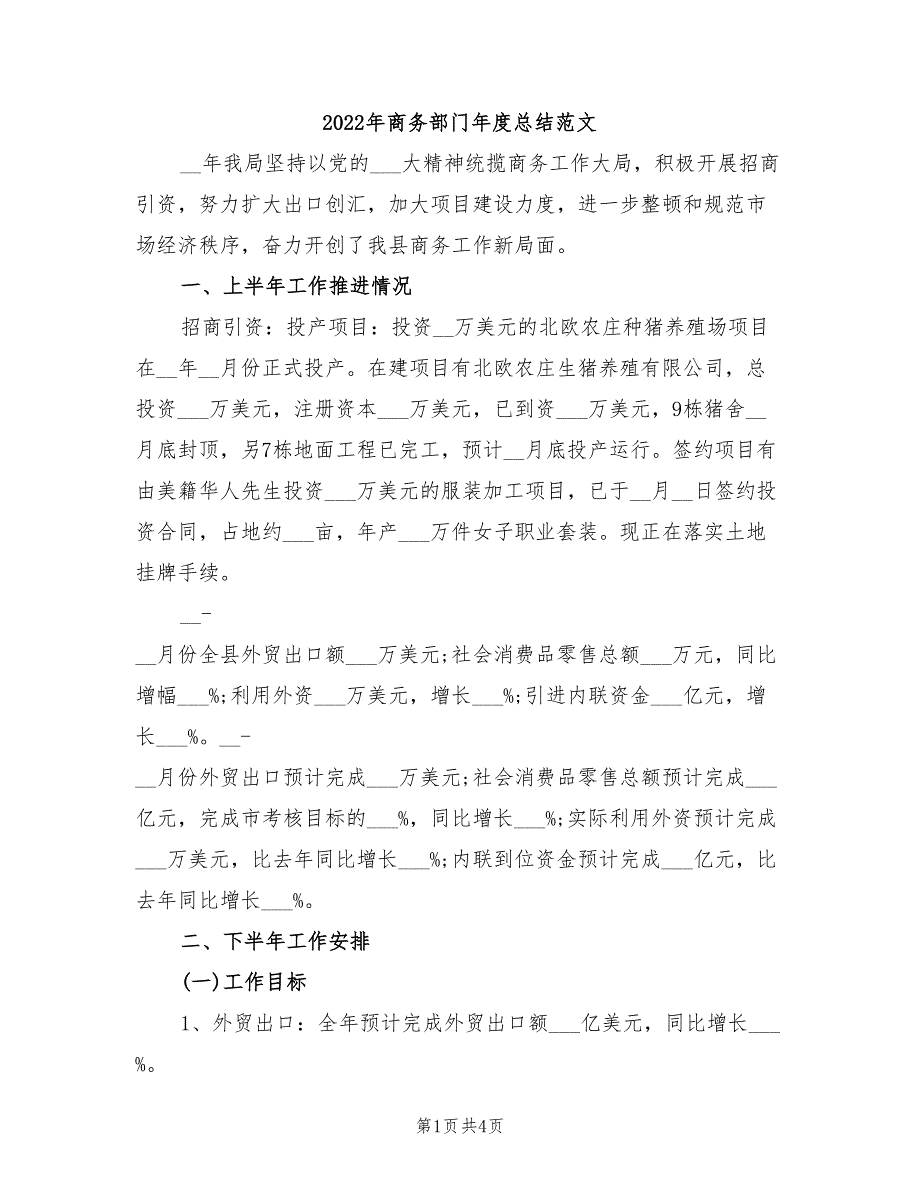 2022年商务部门年度总结范文
__年我局坚持以党的___大精神统揽商务工作大局，积极开展招商
引资，努力扩大出口创汇，加大项目建设力度，进一步整顿和规范市
场经济秩序，奋力开创了我县商务工作新局面。
一、上半年工作推进情况
招商引资：投产项目：投资__万美元的北欧农庄种猪养殖场项目
在__年__月份正式投产。在建项目有北欧农庄生猪养殖有限公司，总
投资___万美元，注册资本___万美元，已到资___万美元，9栋猪舍__
月底封顶，另7栋地面工程已完工，预计__月底投产运行。签约项目有
由美籍华人先生投资___万美元的服装加工项目，已于__月__日签约投
资合同，占地约___亩，年产___万件女子职业套装。现正在落实土地
挂牌手续。
__-
__月份全县外贸出口额___万美元;社会消费品零售总额___万元，同比
增幅___%;利用外资___万美元，增长___%;引进内联资金___亿元，增
长___%。__-
__月份外贸出口预计完成___万美元;社会消费品零售总额预计完成___
亿元，完成市考核目标的___%，同比增长___%;实际利用外资预计完成
___万美元，比去年同比增长___%;内联到位资金预计完成___亿元，比
去年同比增长___%。
二、下半年工作安排
(一)工作目标
1、外贸出口：全年预计完成外贸出口额___亿美元，同比增长___
%。
第1页共4页